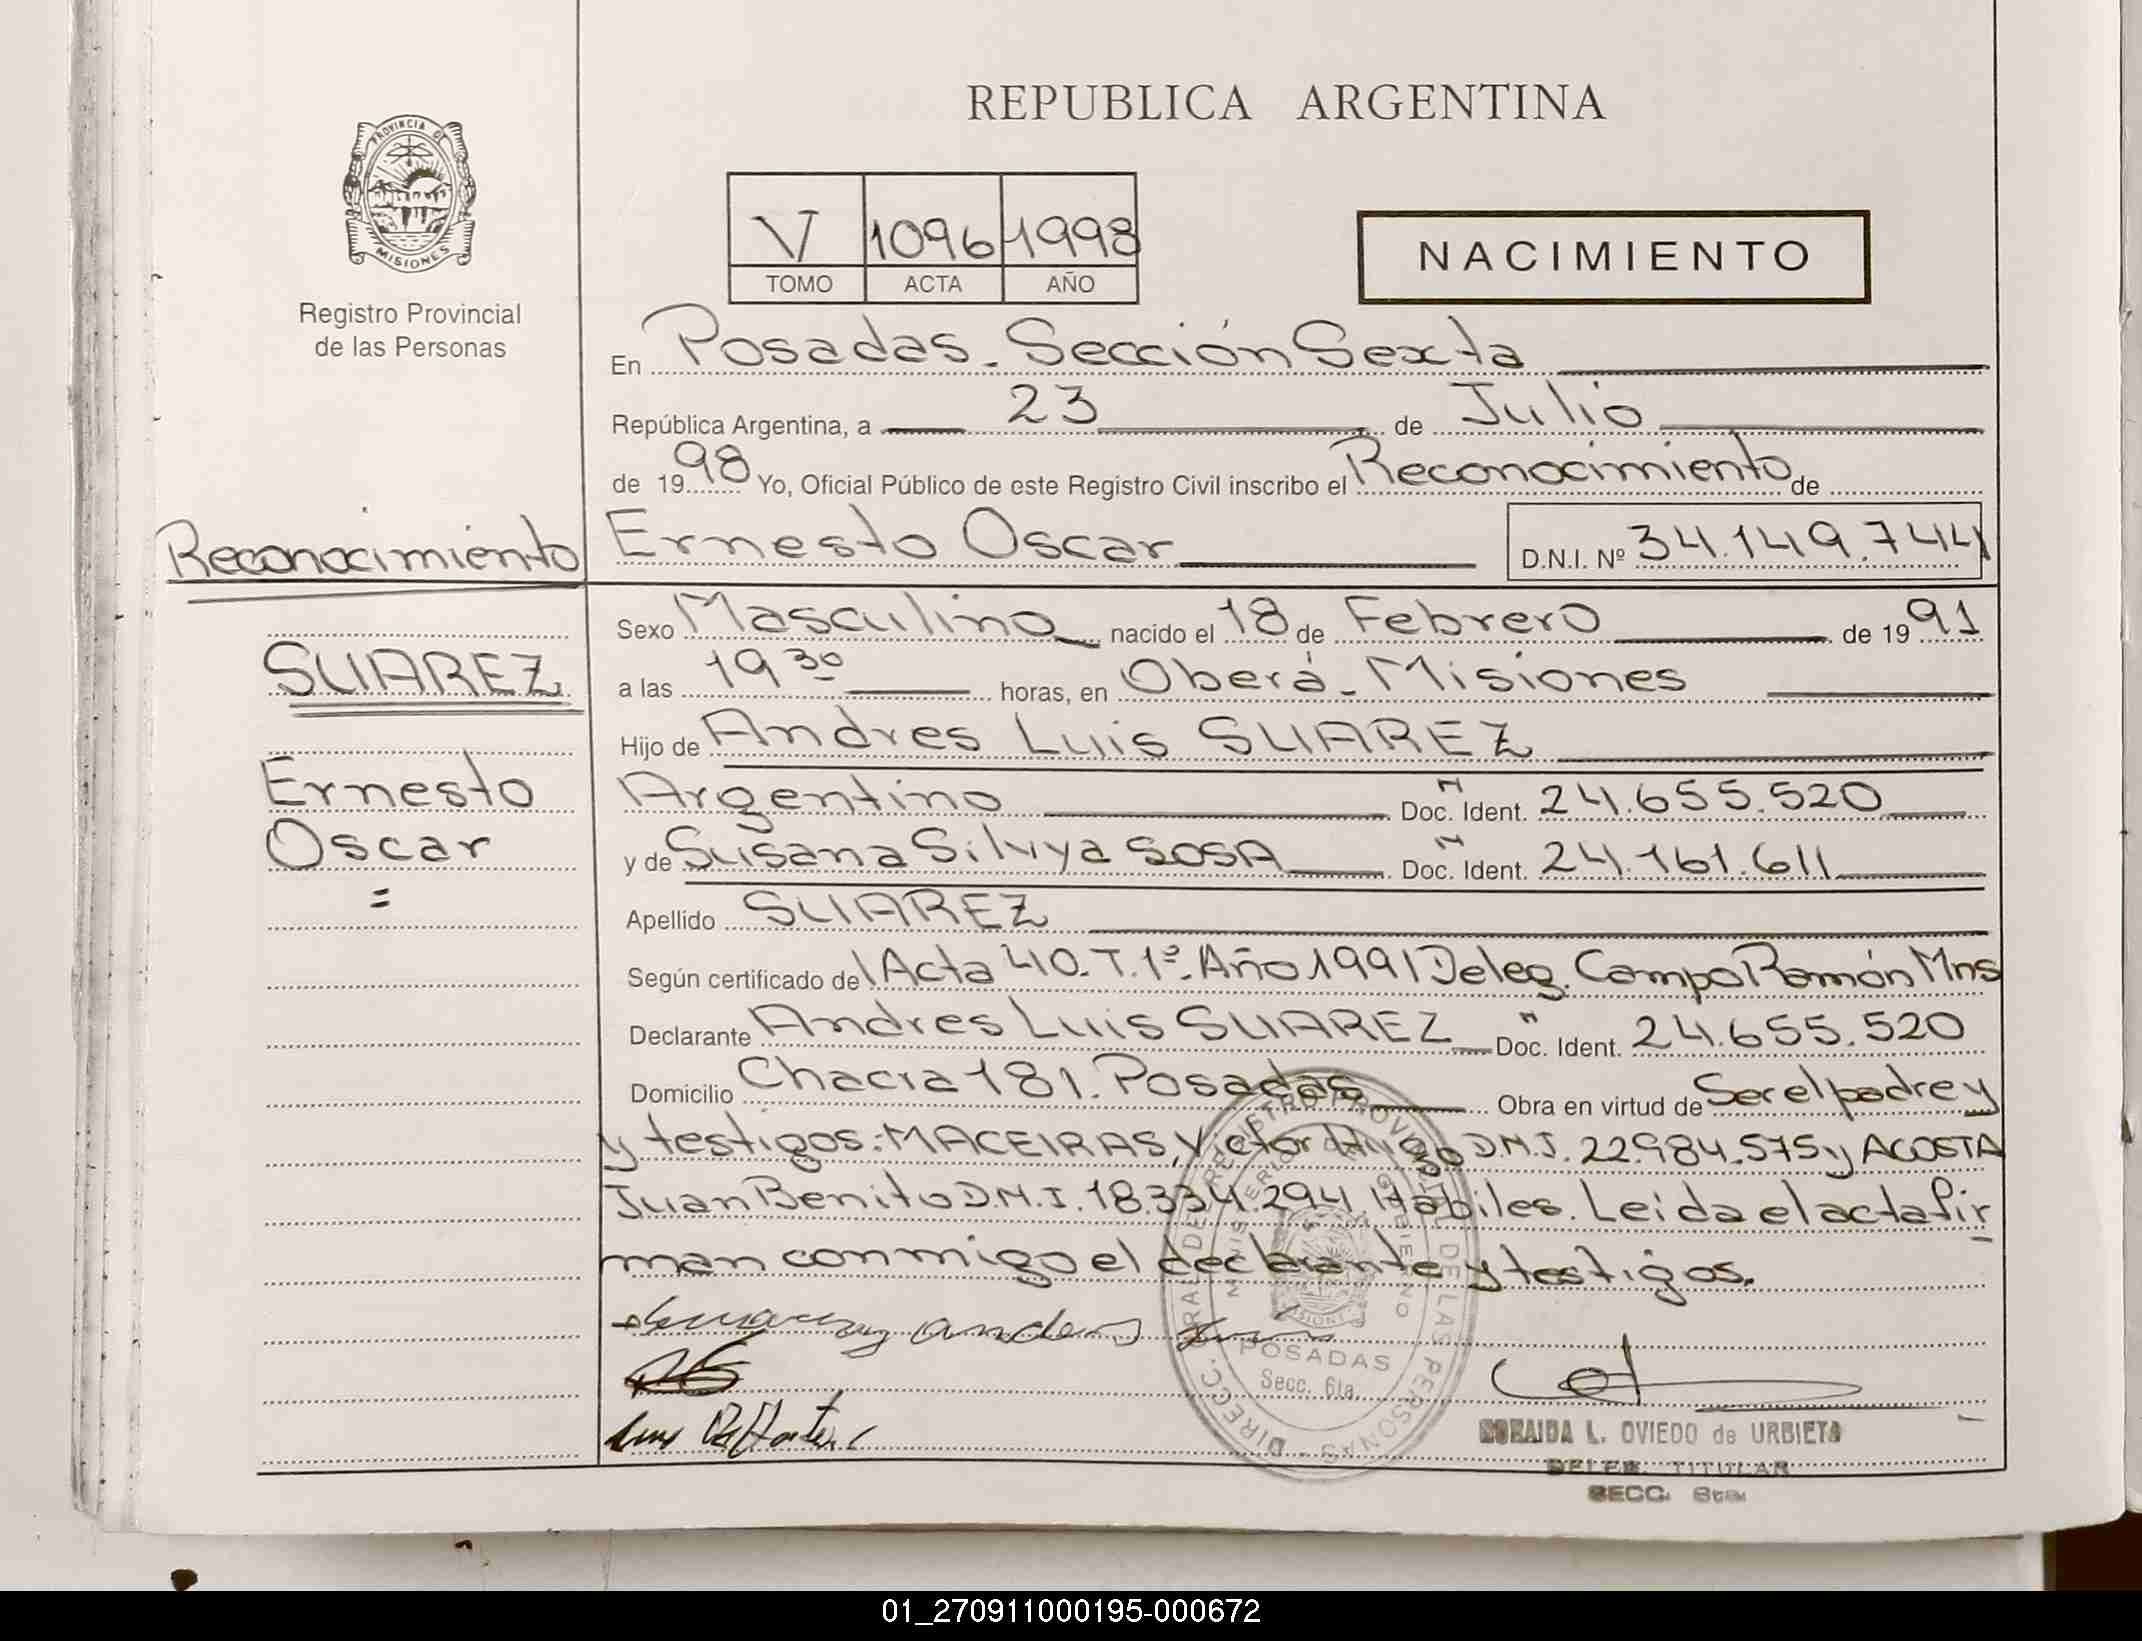 REPUBLICA ARGENTINA
PROVINCIA DE
MISIONES
Registro Provincial
de las Personas
V 1096 1998
TOMO ACTA AÑO
NACIMIENTO
En Posadas. Sección Sexta
República Argentina, a 23 de Julio
de 1998 Yo, Oficial Público de este Registro Civil inscribo el Reconocimiento de
Reconocimiento
Ernesto Oscar D.N.I. Nº 34.149.744
Sexo Masculino nacido el 18 de Febrero de 1991
SUAREZ
a las 19 30 horas, en Oberá. Misiones
Hijo de Andres Luis SUAREZ
Ernesto
Argentino Doc. N Ident. 24.655.520
Oscar
y de Susana Silvya SOSA Doc. N Ident. 24.161.611
=
Apellido SUAREZ
Según certificado de Acta 40. T. 1º. Año 1991 Deleg. Campo Ramón Mns
Declarante Andres Luis SUAREZ Doc. N Ident. 24.655.520
Domicilio Chacra 181. Posadas Obra en virtud de Ser el padre y
y testigos: MACEIRAS, Victor Hugo D.N.I. 22.984.575 y ACOSTA
Juan Benito D.N.I. 18.334.294 Hábiles. Leida el acta fir
man conmigo el declarante y testigos.
DIRECC. GRAL DE REGISTRO PROVINCIAL DE LAS PERSONAS
MINISTERIO DE GOBIERNO
MISIONES
POSADAS
Secc. 6ta.
SORAIDA L. OVIEDO de URBIETA
DELEG. TITULAR
SECC. 6ta.
01_270911000195-000672